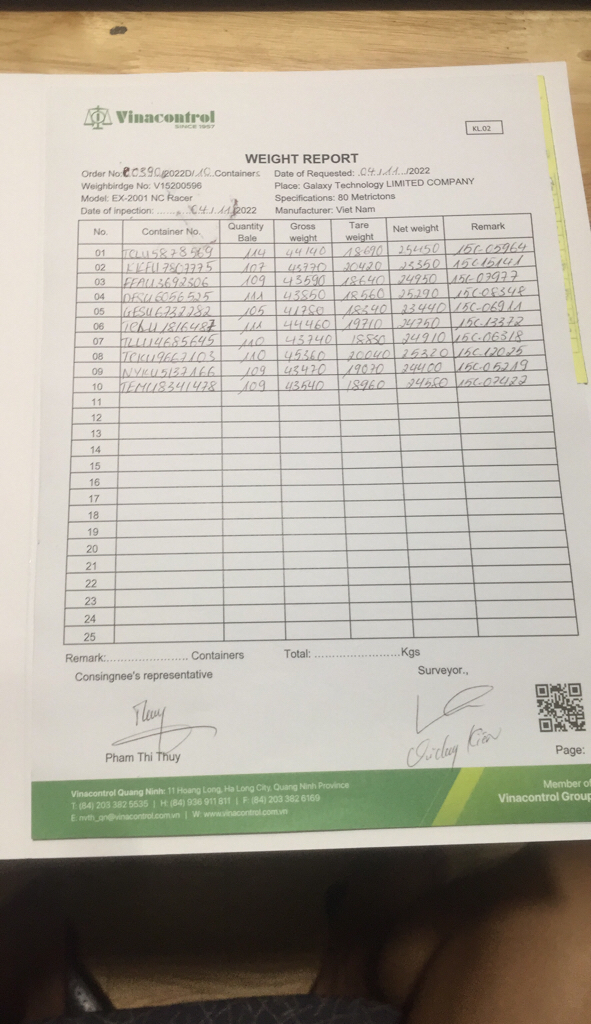 Vinacontrol
SINCE 1957
KL.02
WEIGHT REPORT
Order No: 0390/2022D/10 Containers Date of Requested: 04/11/2022
Weighbirdge No: V15200596 Place: Galaxy Technology LIMITED COMPANY
Model: EX-2001 NC Racer Specifications: 80 Metrictons
Date of inpection: 04/11/2022 Manufacturer: Viet Nam
No. Container No. Quantity Bale Gross weight Tare weight Net weight Remark
01 TCLU5878569 114 44140 18690 25450 15C-05964
02 107 43770 20420 23350 15C-15141
03 FFAU3692306 109 43590 18640 24950 15C-07977
04 111 43850 18560 25290 15C-08348
05 GESU6732282 105 41780 18340 23440 15C-06911
06 111 44460 19710 24750 15C-13372
07 TLLU4685645 110 43740 18830 24910 15C-06318
08 TCKU9667103 110 45360 20040 25320 15C-12025
09 NYKU5137166 109 43470 19070 24400 15C-05219
10 TEMU8341478 109 43540 18960 24580 15C-07422
11
12
13
14
15
16
17
18
19
20
21
22
23
24
25
Remark:........................ Containers Total: ..........................Kgs
Consingnee's representative Surveyor.,
Thuy
Pham Thi Thuy
Page:
Vinacontrol Quang Ninh: 11 Hoang Long, Ha Long City, Quang Ninh Province
T: (84) 203 382 5535 | H: (84) 936 911 811 | F: (84) 203 382 6169
E: nvth_qn@vinacontrol.com.vn | W: www.vinacontrol.com.vn
Member of
Vinacontrol Group